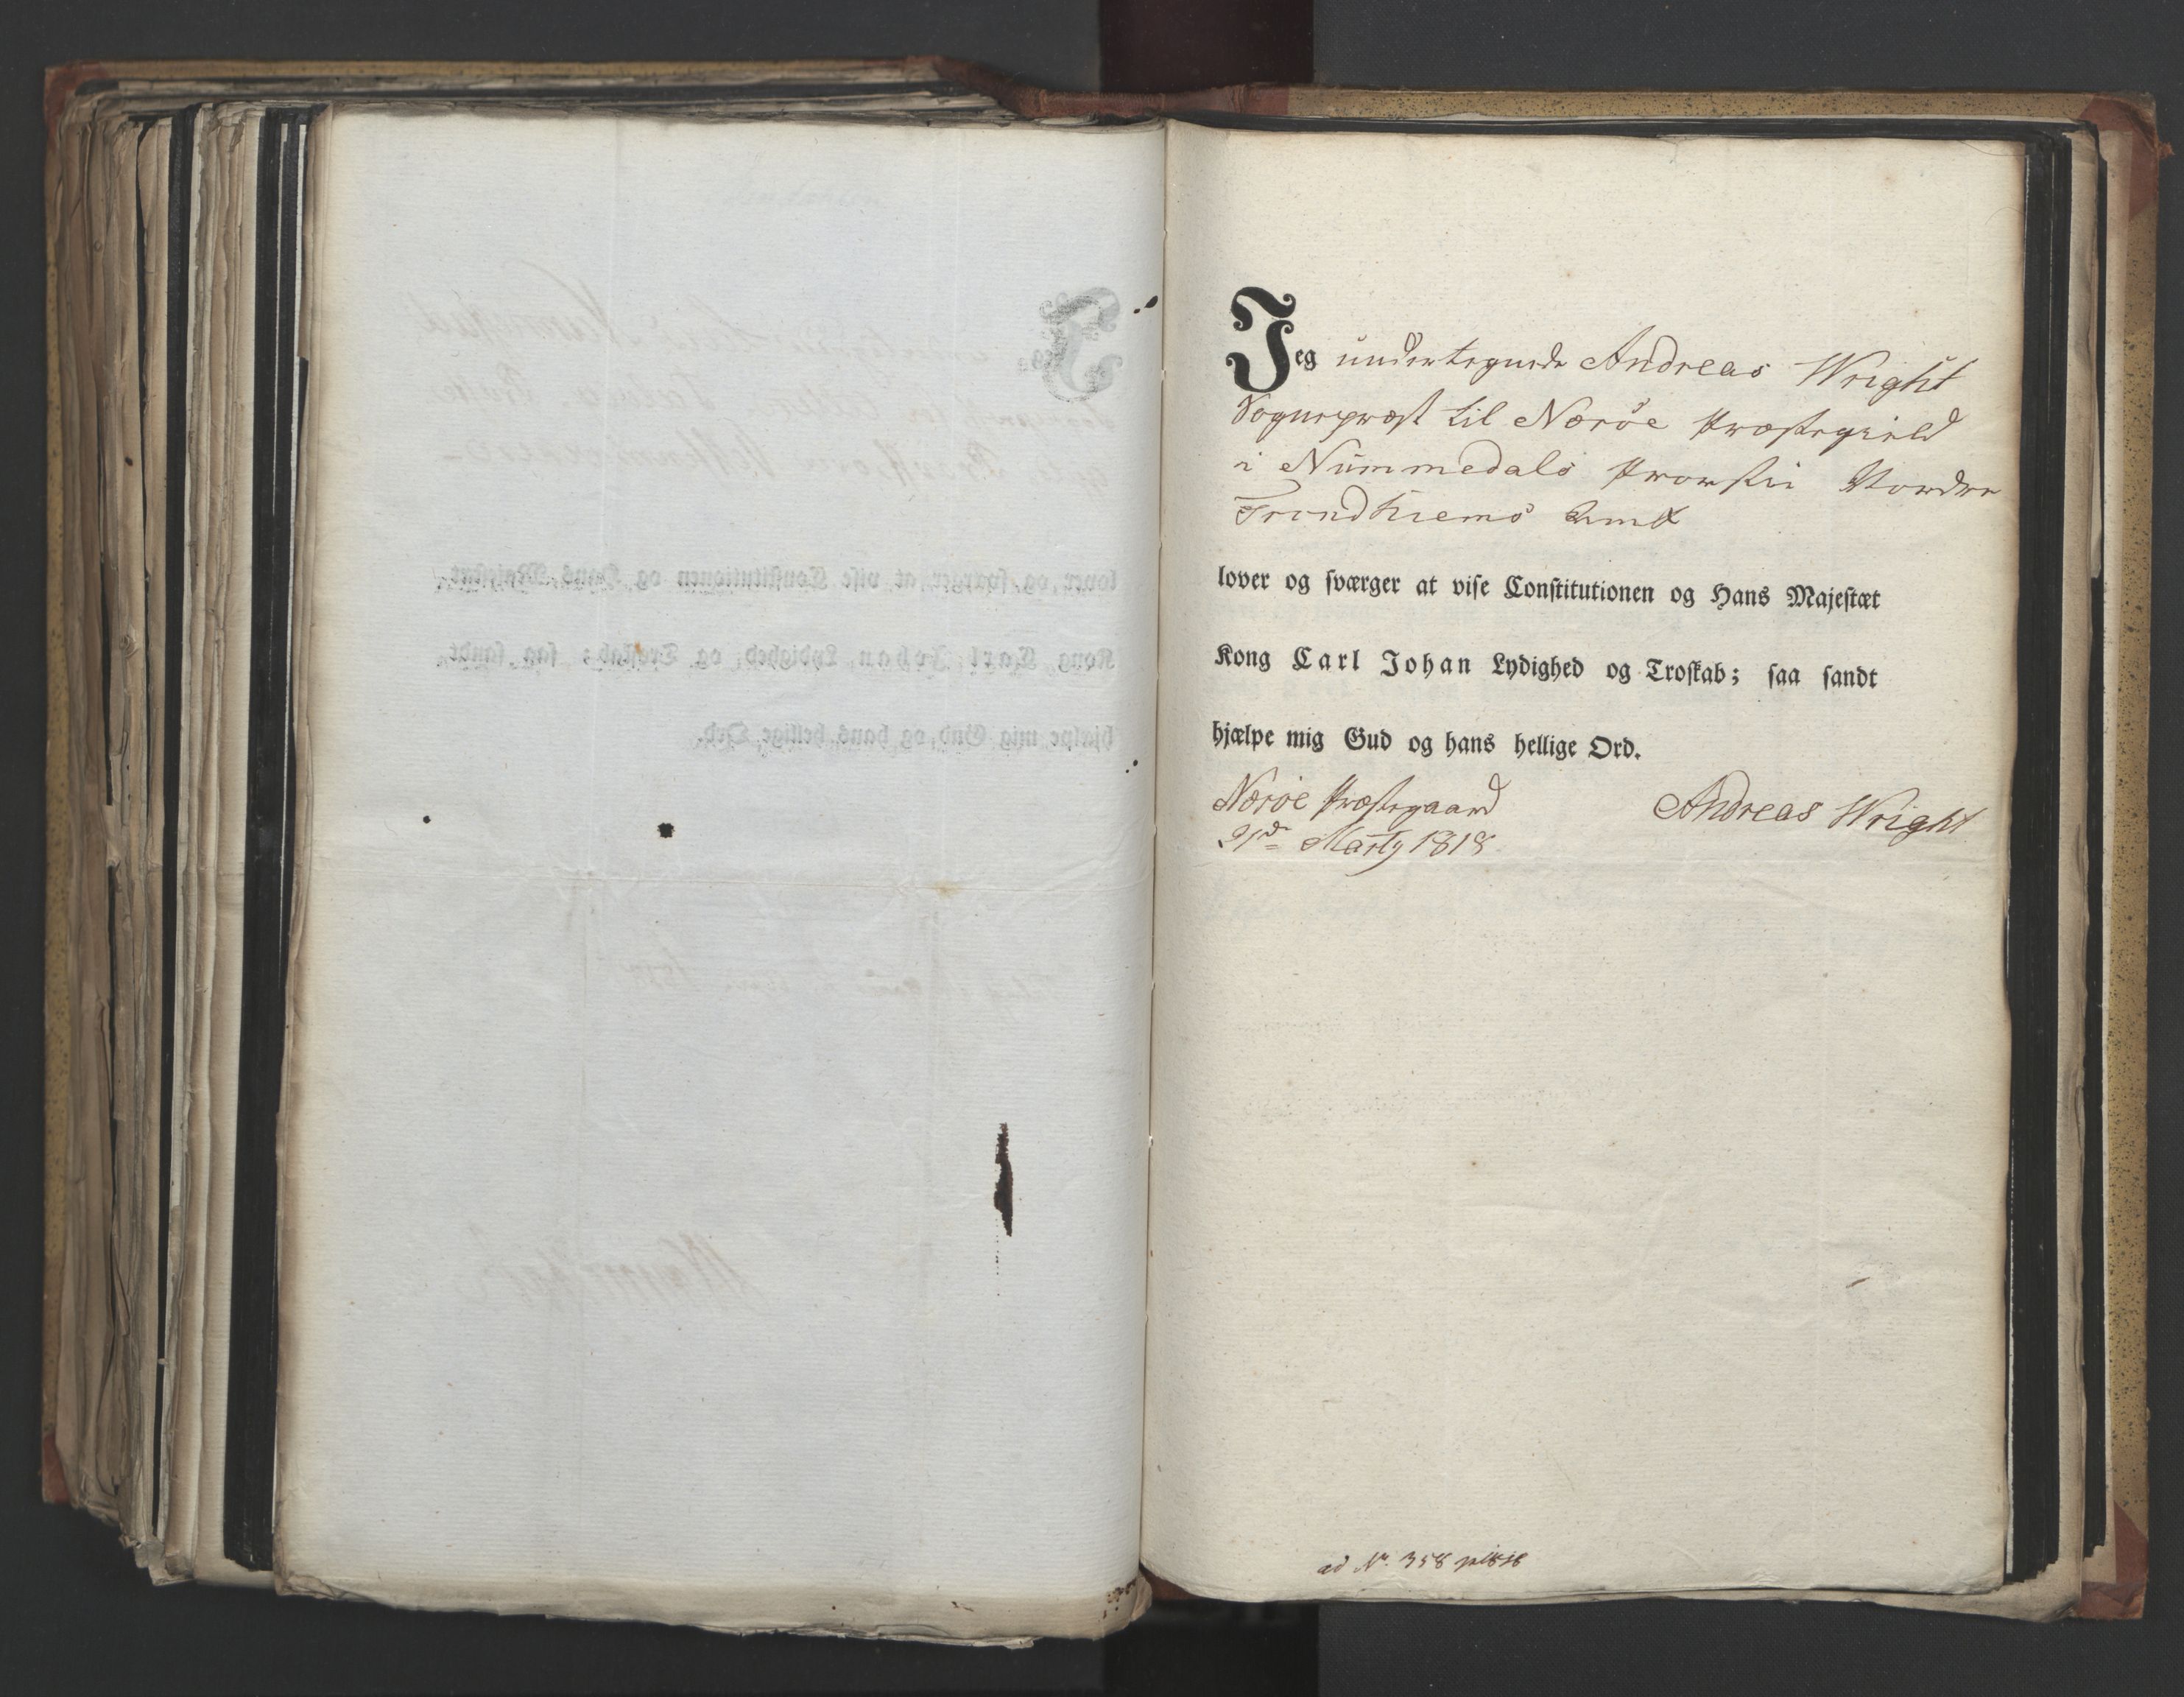 Jeg undertegnede Andreas Wright
Sognepræst til Nærøe Præstegield
i Nummedals Provstie Nordre
Trondhiems Amt
lover og sværger at vise Constitutionen og Hans Majestæt
Kong Carl Johan Lydighed og Troskab; saa sandt
hjælpe mig Gud og hans hellige Ord.
Nærøe Præstegaard
Marty 1818
Andreas Wright
ad Nr. 358 p 1818